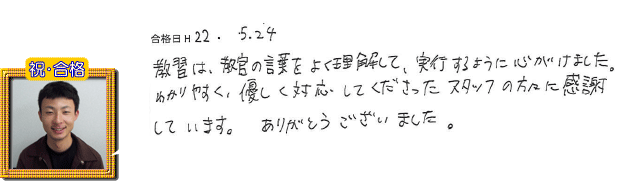 合格日H22. 5.24
祝・合格
教習は、教官の言葉をよく理解して、実行するように心がけました。
わかりやすく、優しく対応してくださったスタッフの方々に感謝
しています。 ありがとうございました。